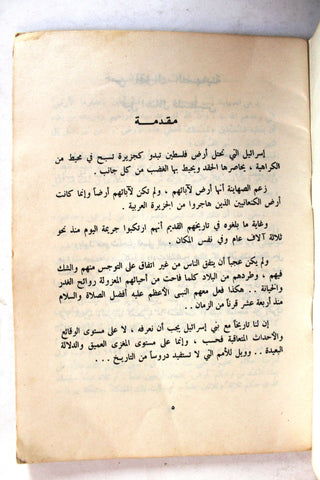 مقدمة
إسرائيل التي تحتل أرض فلسطين تبدو كجزيرة تسبح في محيط من
الكراهية ، يحاصرها الحقد ويحيط بها الغضب من كل جانب .
زعم الصهاينة أنها أرض لآبائهم ، ولم تكن لآبائهم أرضاً وإنما كانت
أرض الكنعانيين الذين هاجروا من الجزيرة العربية .
وغاية ما بلغوه في تاريخهم القديم أنهم ارتكبوا جريمة اليوم منذ نحو
ثلاثة آلاف عام وفي نفس المكان .
ولم يكن عجباً أن يتفق الناس من غير اتفاق على التوجس منهم والشك
فيهم ، وطردهم من البلاد كلما فاحت من أحيائهم المعزولة روائح الغدر
والخيانة .. هكذا فعل معهم النبى الأعظم عليه أفضل الصلاة والسلام
منذ أربعة عشر قرناً من الزمان ..
إن لنا تاريخاً مع بني إسرائيل يجب أن نعرفه ، لا على مستوى الوقائع
والأحداث المتعاقبة فحسب ، وإنما على مستوى المغزى العميق والدلالة
البعيدة .. وويل للأمم التي لا تستفيد دروساً من التاريخ ...
٥